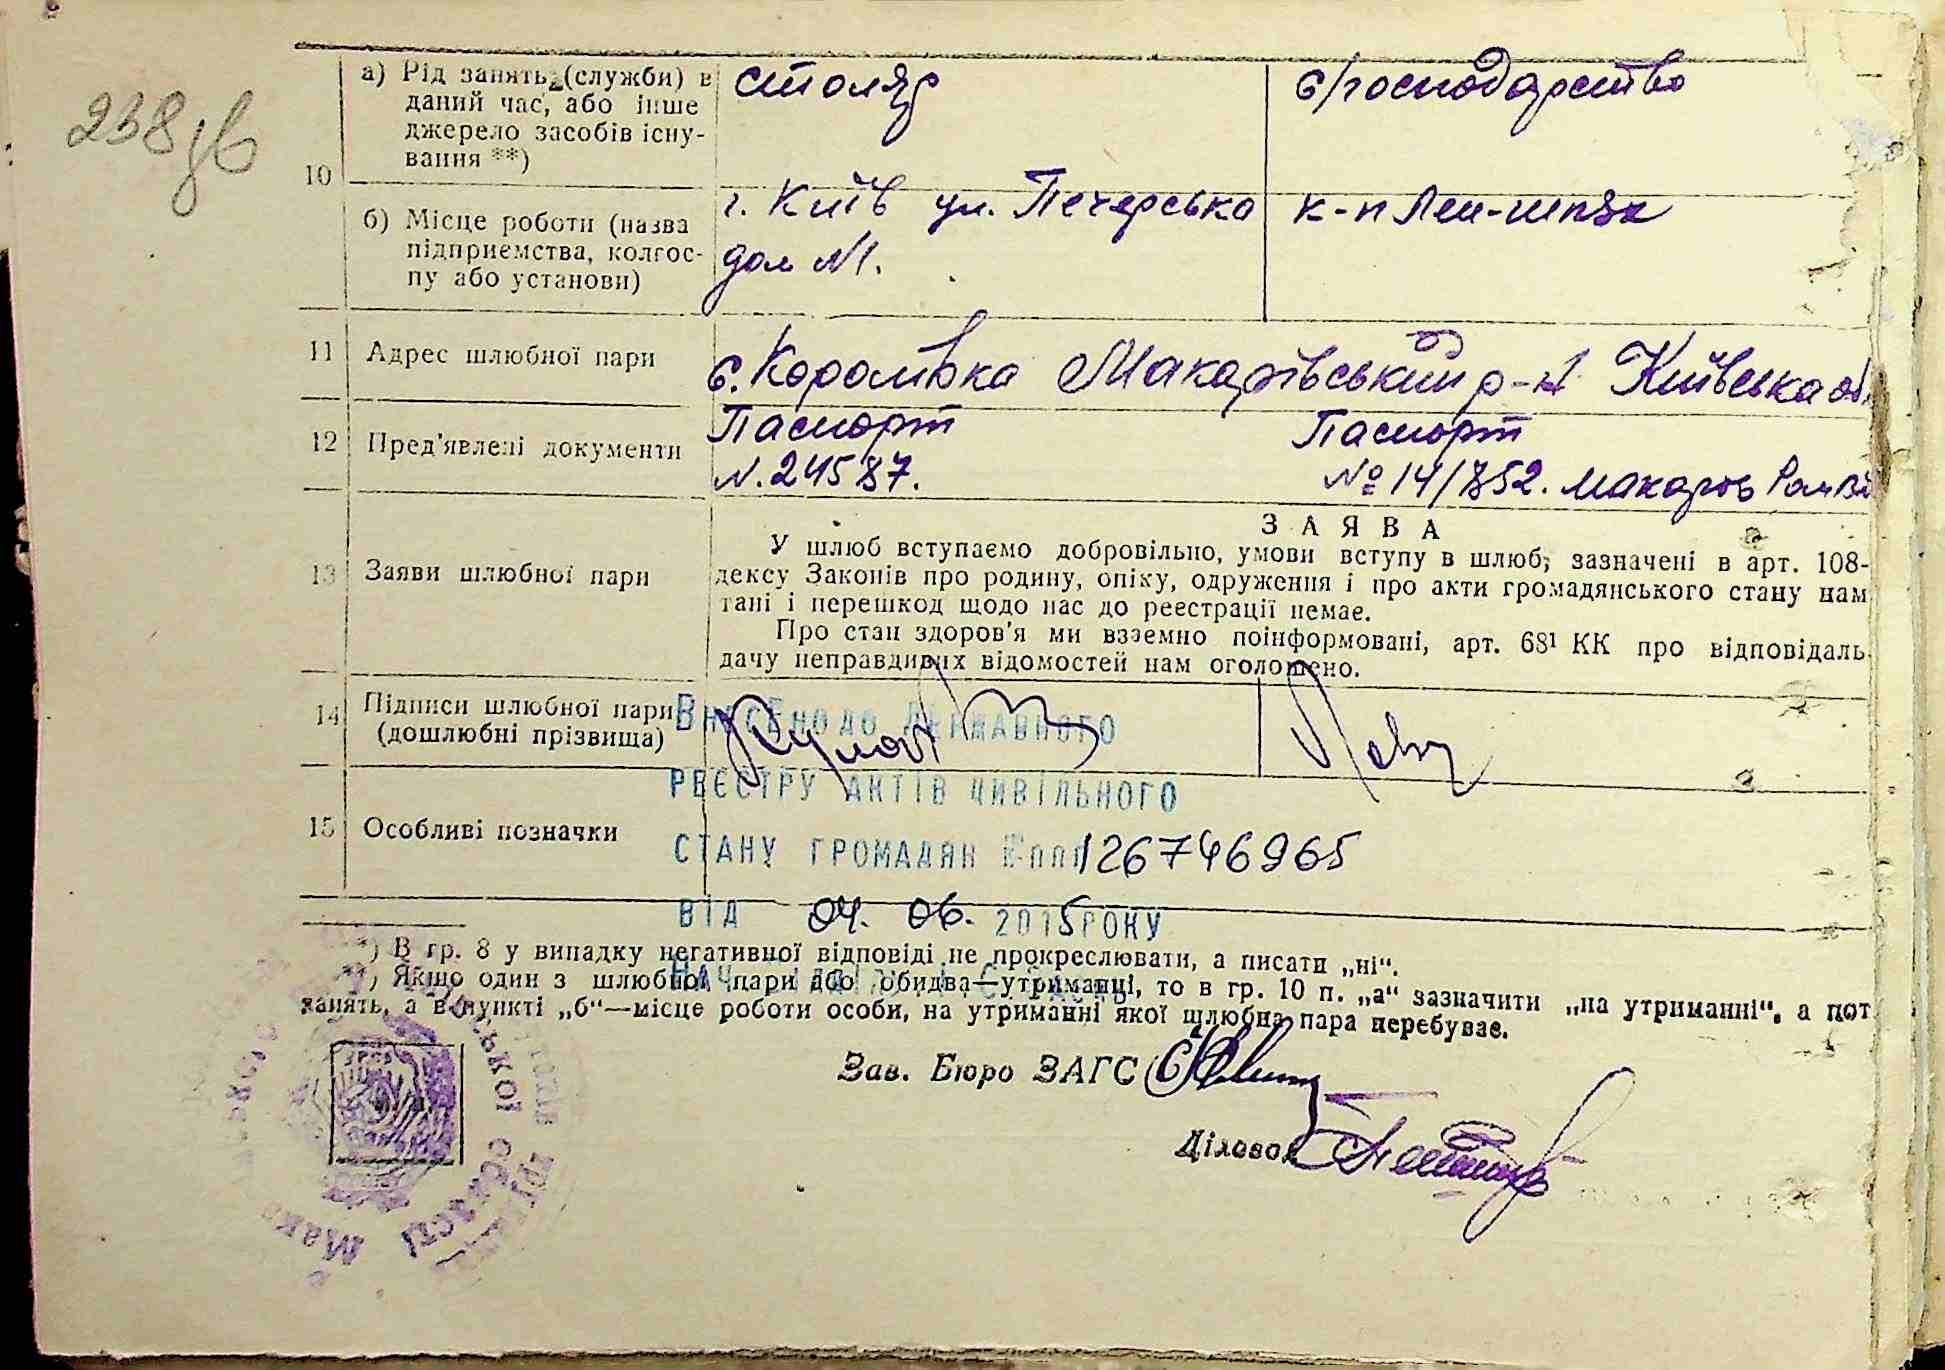 238зв
10
а) Рід занять (служби) в
даний час, або інше
джерело засобів існу-
вання **)
столяр
с/господарство
б) Місце роботи (назва
підприємства, колгос-
пу або установи)
г. Київ ул. Печерська
дом №1.
к-п
11 Адрес шлюбної пари
с. Королівка Макарівський р-н Київська об.
12 Пред'явлені документи
Паспорт
N. 24587.
Паспорт
№ 14/852. Макаров
13 Заяви шлюбної пари
ЗАЯВА
У шлюб вступаємо добровільно, умови вступу в шлюб, зазначені в арт. 108-
дексу Законів про родину, опіку, одруження і про акти громадянського стану нам
тані і перешкод щодо нас до реєстрації немає.
Про стан здоров'я ми взаємно поінформовані, арт. 68¹ КК про відповідаль
дачу неправдивих відомостей нам оголошено.
14 Підписи шлюбної пари
(дошлюбні прізвища)
Внесено до Державного
реєстру актів цивільного
15 Особливі позначки
стану громадян 126746965
від 04. 06. 2015 року
*) В гр. 8 у випадку негативної відповіді не прокреслювати, а писати „ні“.
*) Якщо один з шлюбної пари або обидва—утриманці, то в гр. 10 п. „а“ зазначити „на утриманні“, а пот
занять, а в пункті „б“—місце роботи особи, на утриманні якої шлюбна пара перебуває.
Зав. Бюро ЗАГС
Діловод
УРСР
ської області